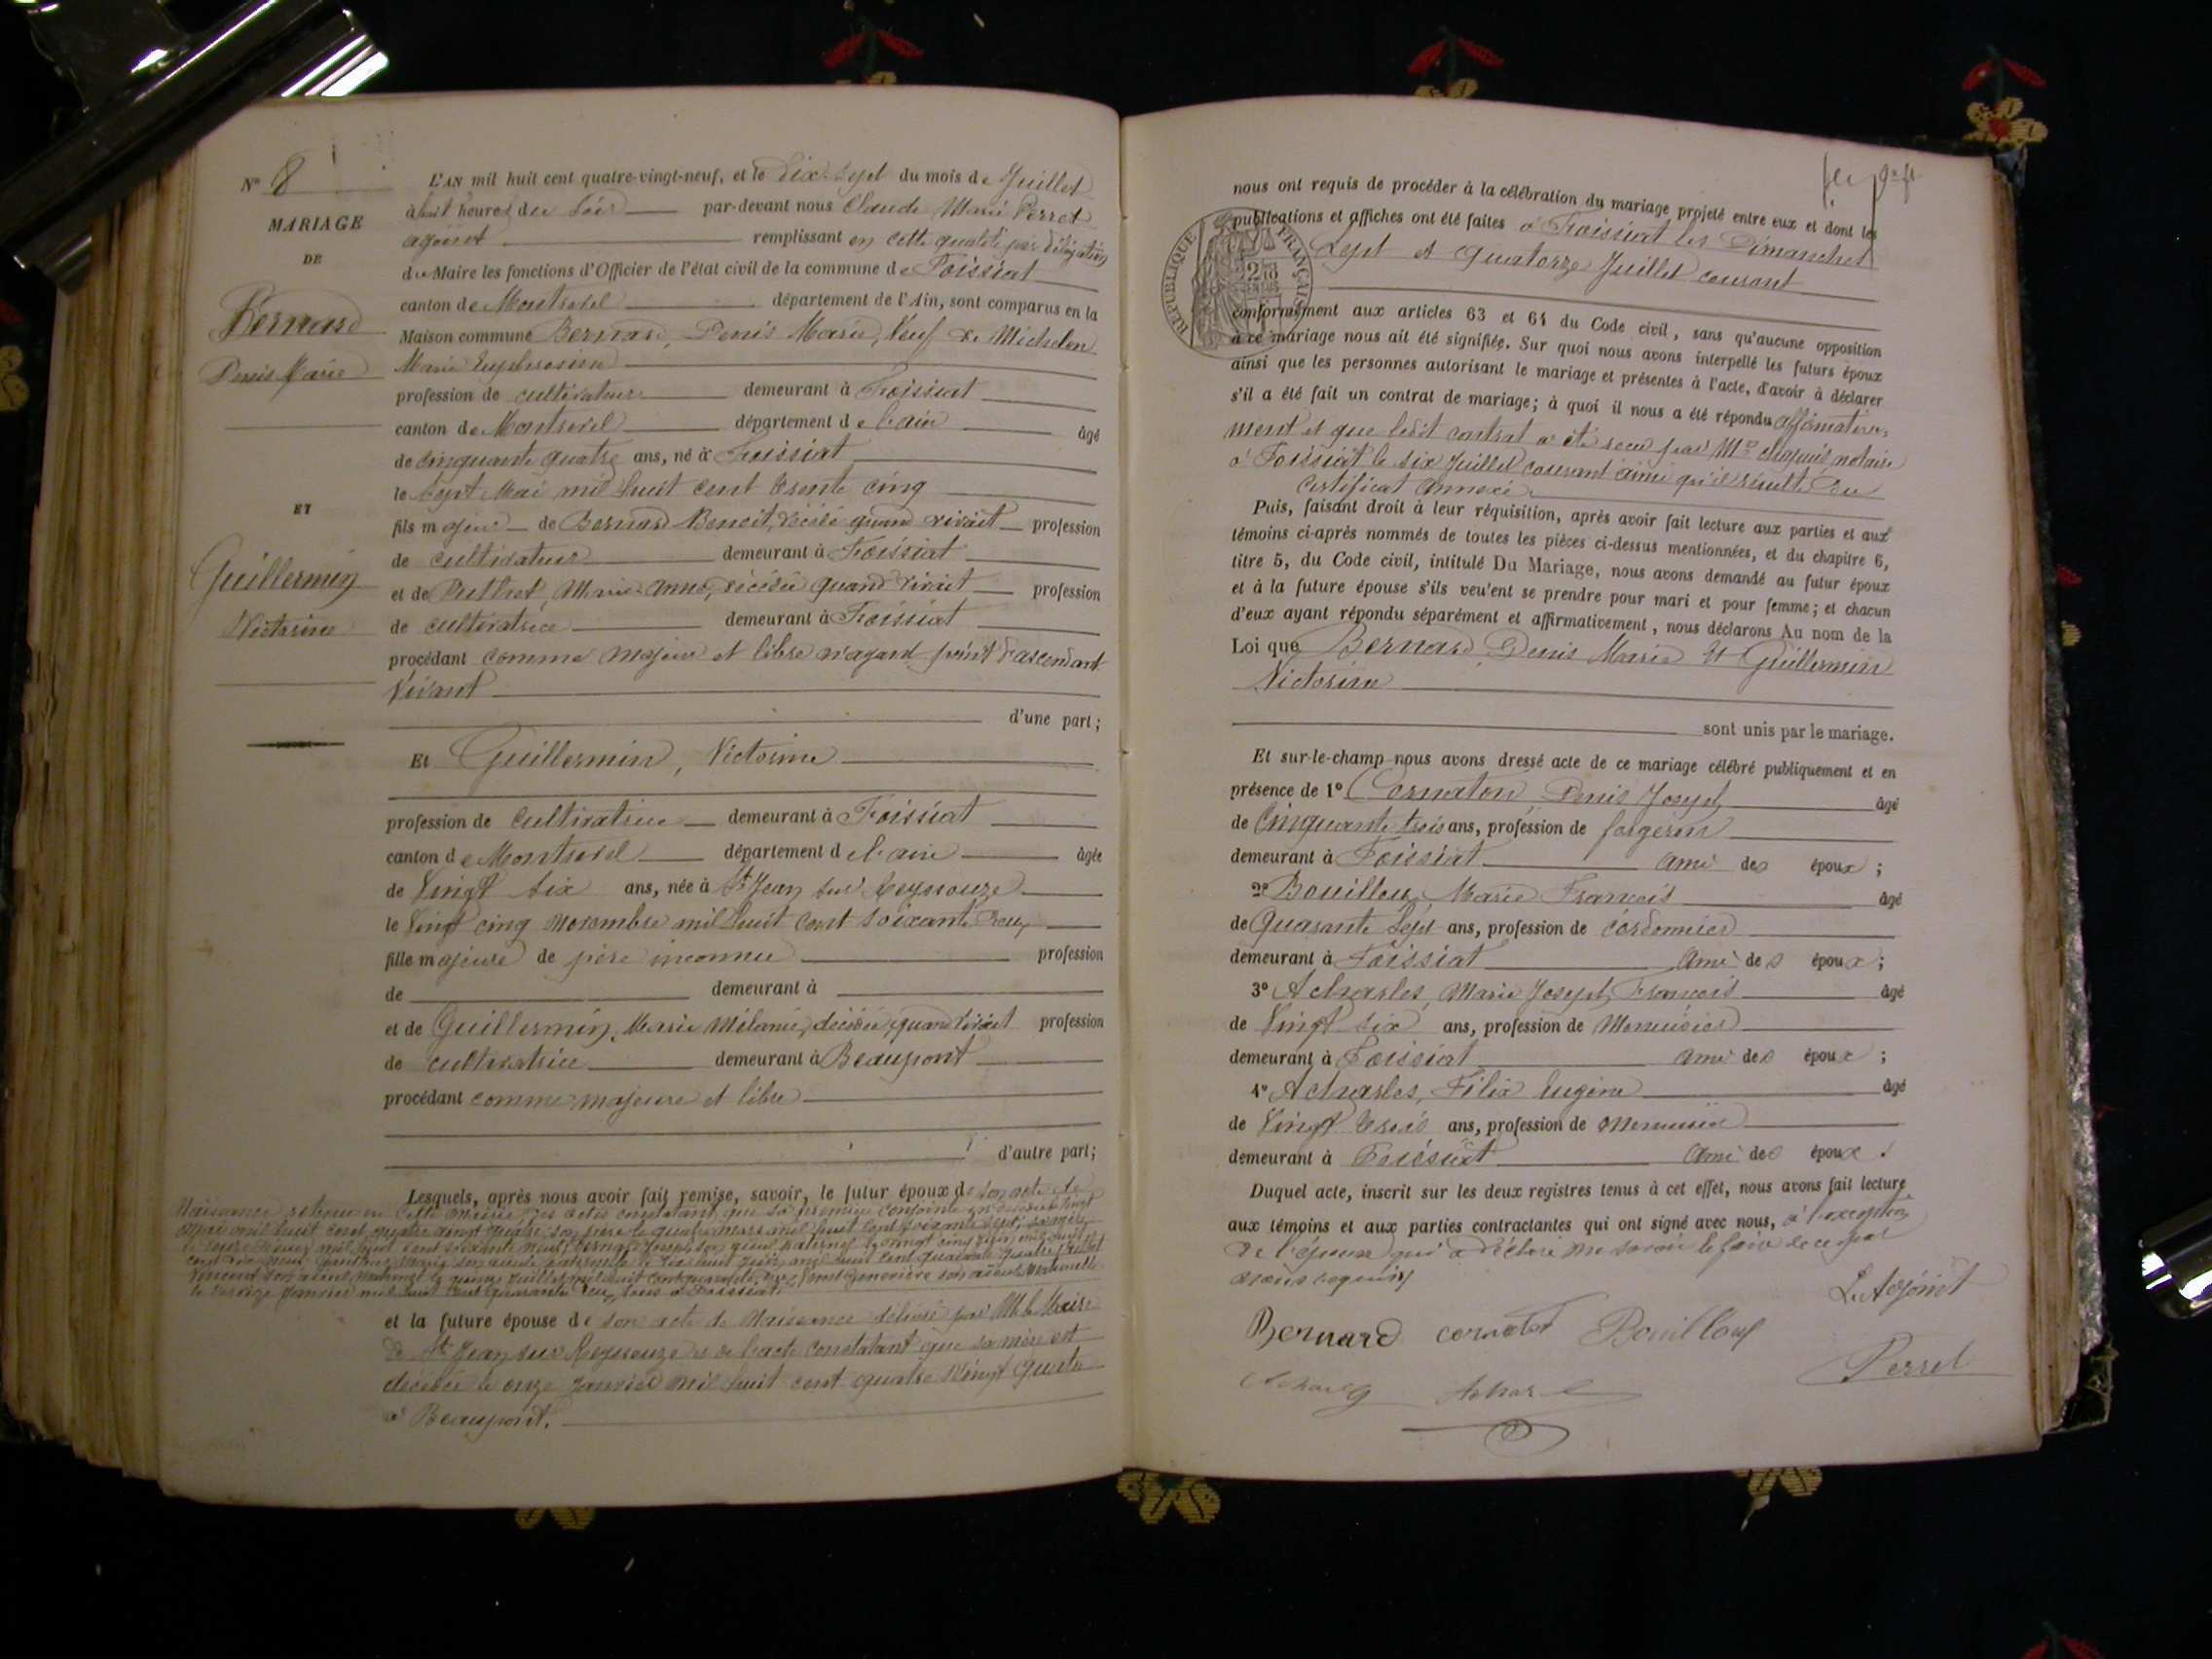 N° 8
MARIAGE
DE
Bernard
Denis Marie
ET
Guillermin
Victorine
L'AN mil huit cent quatre-vingt-neuf, et le Dix-Sept du mois de Juillet
à huit heures du Soir par-devant nous Claude Marie Perret
adjoint remplissant en cette qualité par délégation
du Maire les fonctions d'Officier de l'état civil de la commune de Foissiat
canton de Montrevel département de l'Ain, sont comparus en la
Maison commune Bernard, Denis Marie, Veuf de Michelon
Marie Euphrosine
profession de cultivateur demeurant à Foissiat
canton de Montrevel département de l'ain âgé
de Cinquante quatre ans, né à Foissiat
le Sept Mai mil huit cent trente cinq
fils majeur de Bernard Benoit, décédé quand vivait profession
de cultivateur demeurant à Foissiat
et de Marie-Anne, décédée quand vivait profession
de cultivatrice demeurant à Foissiat
procédant comme majeur et libre n'ayant point d'ascendant
Vivant
d'une part;
Et Guillermin, Victorine
profession de Cultivatrice demeurant à Foissiat
canton de Montrevel département de l'ain âgée
de Vingt Six ans, née à St Jean sur Reyssouze
le Vingt cinq novembre mil huit cent soixante Deux
fille majeure de père inconnu profession
de demeurant à
et de Guillermin, Marie Mélanie, décédée, quand vivait profession
de cultivatrice demeurant à Beaupont
procédant comme majeure et libre
d'autre part;
Lesquels, après nous avoir fait remise, savoir, le futur époux de son acte de
Naissance retenu en cette Mairie, des actes constatant que sa première conjointe est décédée le vingt
mai mil huit cent quatre vingt quatre, son père le quatre mars mil huit cent soixante sept, sa mère
le mil huit cent soixante neuf, Bernard Joseph son aieul paternel le vingt cinq juin mil huit
cent dix neuf, Marie son aieule paternelle le dix huit juin mil huit cent quarante quatre,
Vincent son aieul maternel le quinze Juillet mil huit cent quarante, Geneviève son aieule Maternelle
le treize Janvier mil huit cent quarante deux, tous à Foissiat.
et la future épouse de son acte de Naissance délivré par M. le Maire
de St Jean sur Reyssouze et de l'acte constatant que sa mère est
décédée le onze Janvier mil huit cent quatre Vingt quatre
à Beaupont.
nous ont requis de procéder à la célébration du mariage projeté entre eux et dont les
publications et affiches ont été faites à Foissiat les Dimanches
Sept et Quatorze Juillet courant
REPUBLIQUE FRANÇAISE
conformément aux articles 63 et 64 du Code civil, sans qu'aucune opposition
à ce mariage nous ait été signifiée. Sur quoi nous avons interpellé les futurs époux
ainsi que les personnes autorisant le mariage et présentes à l'acte, d'avoir à déclarer
s'il a été fait un contrat de mariage; à quoi il nous a été répondu affirmative-
ment et que ledit contrat a été reçu par Me notaire
à Foissiat le six Juillet courant ainsi qu'il résulte du
Certificat annexé.
Puis, faisant droit à leur réquisition, après avoir fait lecture aux parties et aux
témoins ci-après nommés de toutes les pièces ci-dessus mentionnées, et du chapitre 6,
titre 5, du Code civil, intitulé Du Mariage, nous avons demandé au futur époux
et à la future épouse s'ils veu'ent se prendre pour mari et pour femme; et chacun
d'eux ayant répondu séparément et affirmativement, nous déclarons Au nom de la
Loi que Bernard Denis Marie Et Guillermin
Victorine
sont unis par le mariage.
Et sur-le-champ nous avons dressé acte de ce mariage célébré publiquement et en
présence de 1° Cornaton Denis Joseph âgé
de Cinquante trois ans, profession de forgeron
demeurant à Foissiat ami des époux;
2° Bouilloux Marie François âgé
de Quarante Sept ans, profession de cordonnier
demeurant à Foissiat Ami des époux;
3° Acharles, Marie Joseph François âgé
de Vingt Six ans, profession de Menuisier
demeurant à Foissiat ami des époux;
4° Acharles, Félix Eugène âgé
de Vingt trois ans, profession de Menuisier
demeurant à Foissiat Ami des époux.
Duquel acte, inscrit sur les deux registres tenus à cet effet, nous avons fait lecture
aux témoins et aux parties contractantes qui ont signé avec nous, à l'exception
de l'épouse qui a déclaré ne savoir le faire de ce par
nous requis
L'Adjoint
Bernard Cornaton Bouilloux
Perret